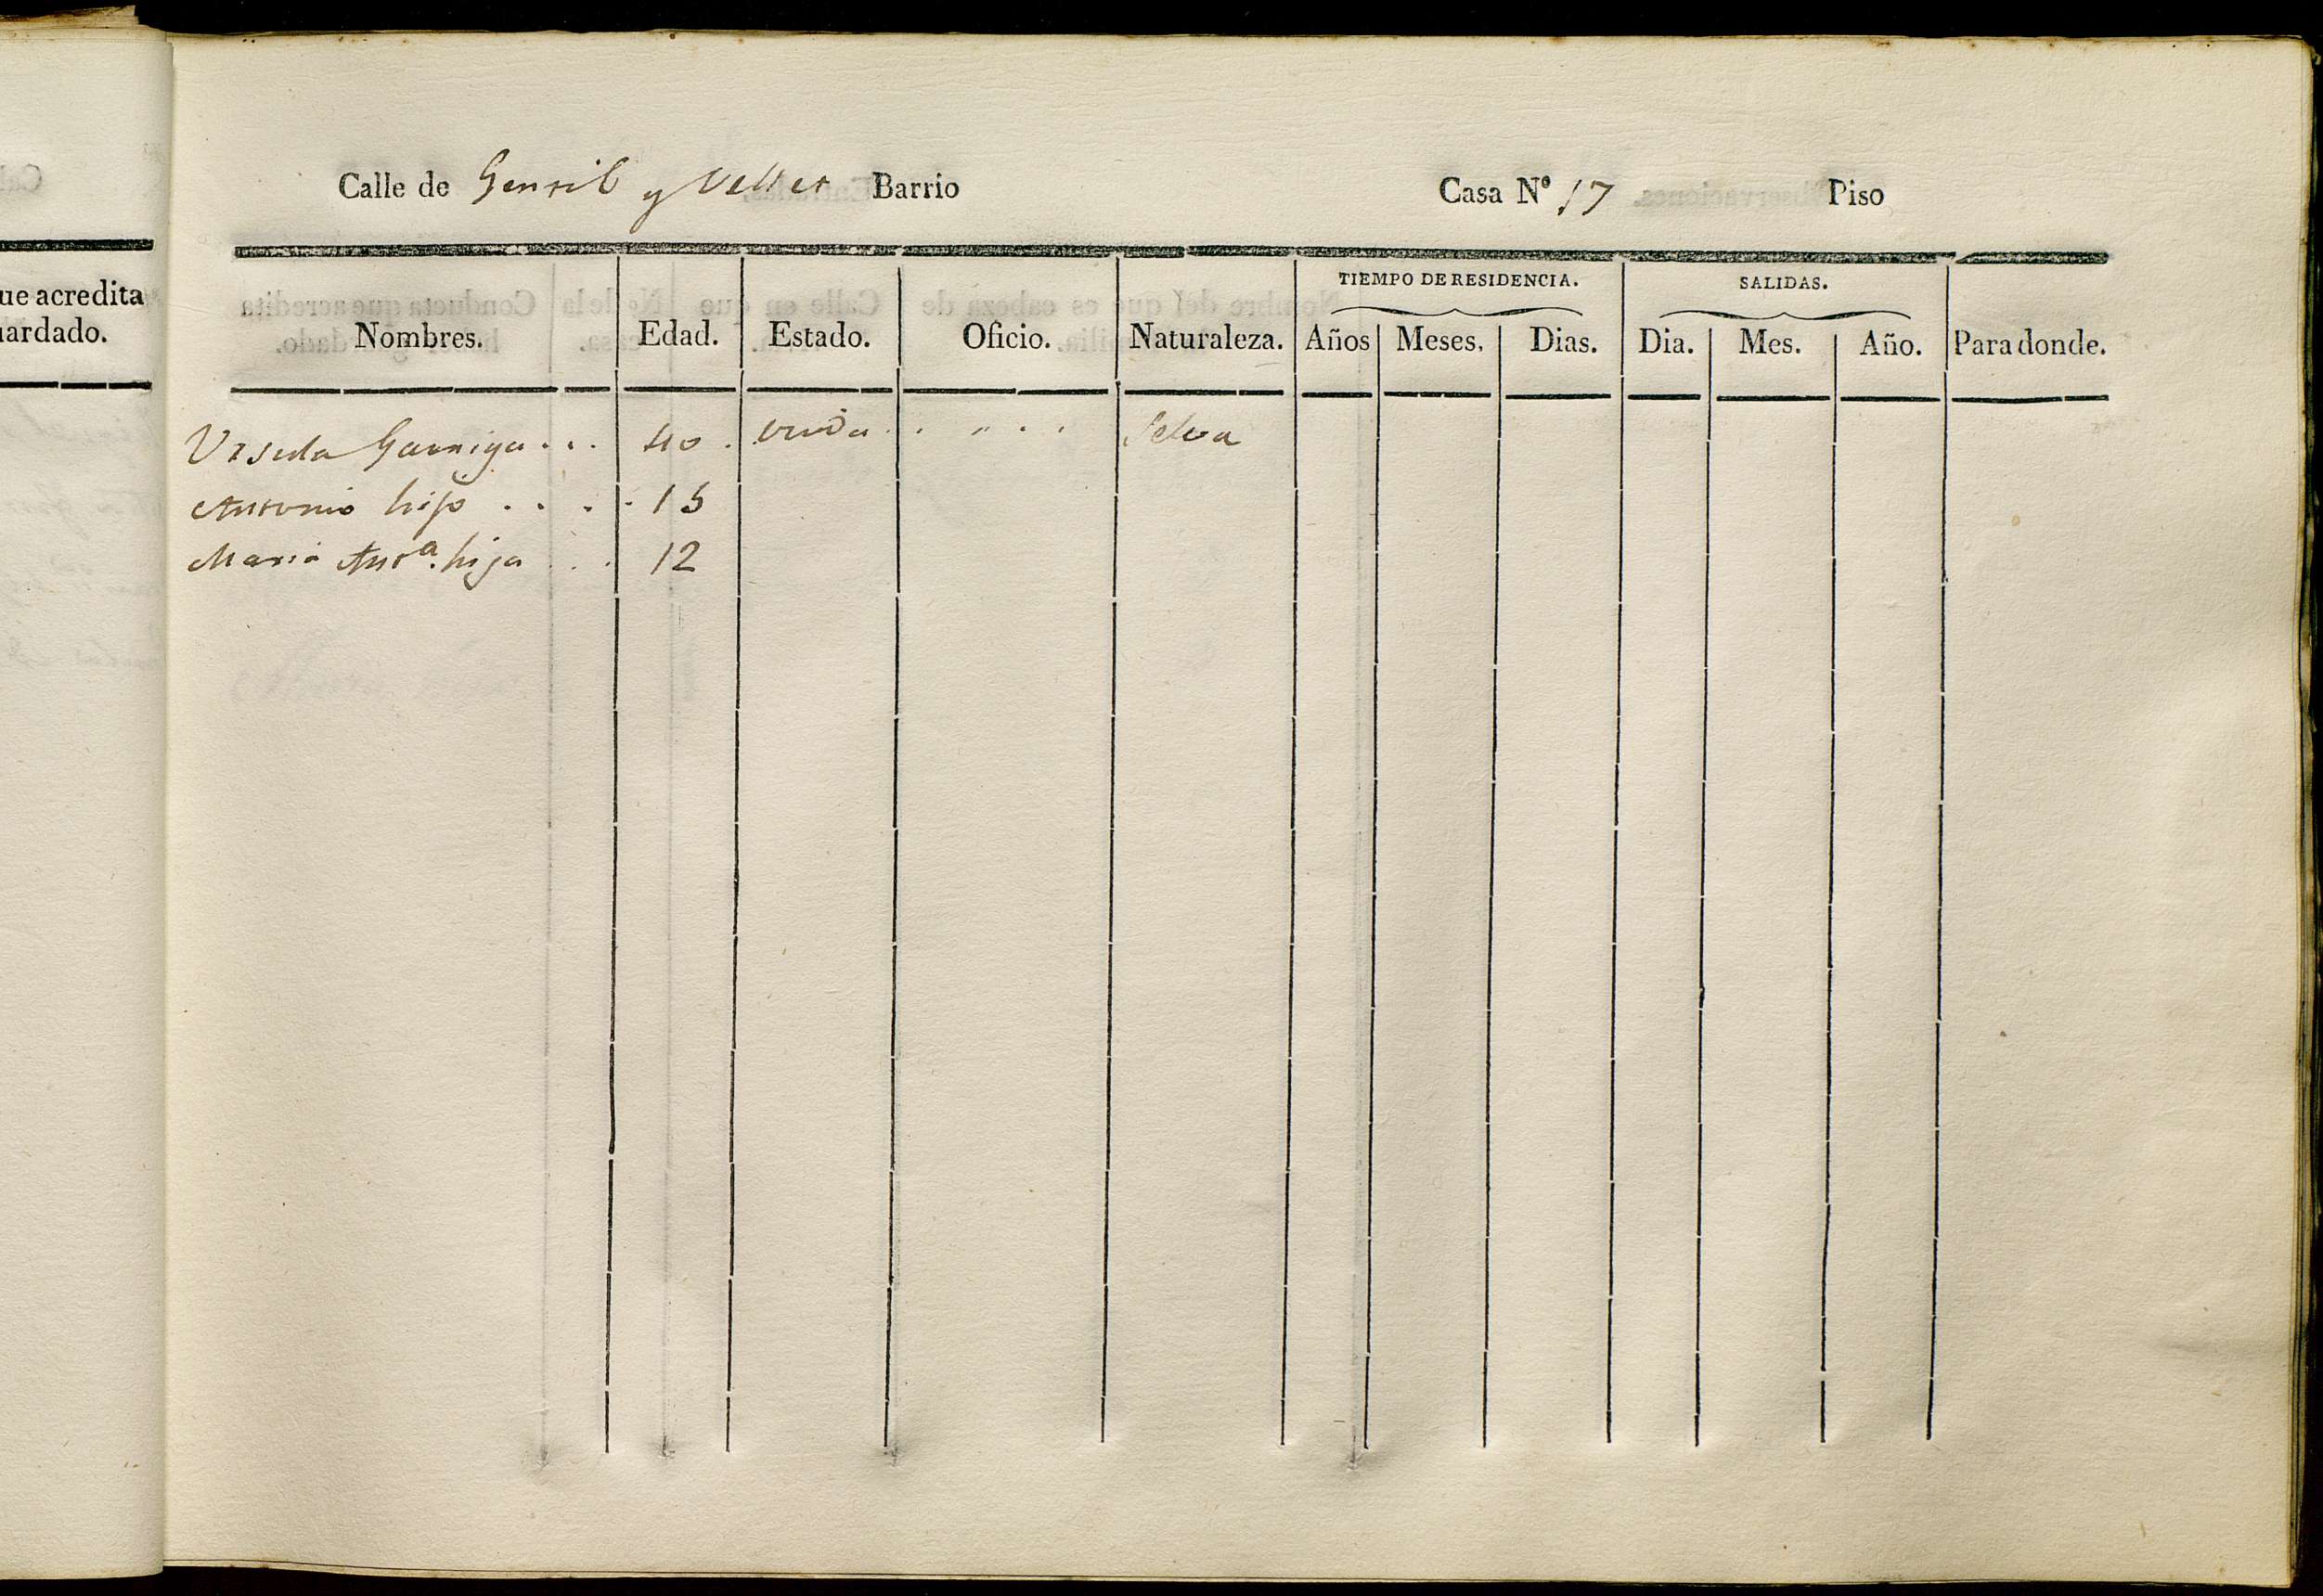 ue acredita
uardado.
Calle de Gentil y Vellet Barrio Casa Nº 17 Piso
TIEMPO DE RESIDENCIA. SALIDAS.
Nombres. Edad. Estado. Oficio. Naturaleza. Años Meses. Dias. Dia. Mes. Año. Para donde.
Ursula Garriga . . . 40 . viuda . . " . . Selva
Antonio hijo . . . . 15
Maria Antª. hija . . . 12